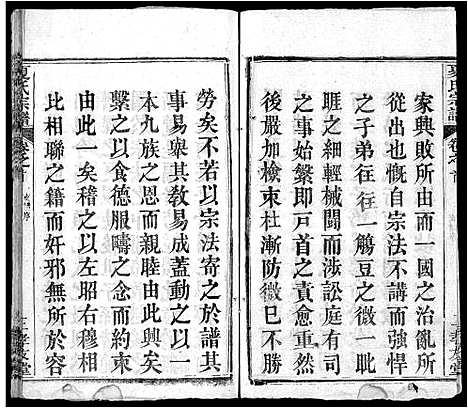 家興敗所由而一國之治亂所
從出也迩自宗法不講而強悍
之子弟往往一觴豆之微一眦
睚之細輕械鬭而涉訟庭有司
之事始繁即戸首之責愈重然
後嚴加檢束杜漸防微已
勞矣不若以宗法寄之於譜其
事易舉其敎易成蓋動之以一
本九族之恩而親睦由此興矣
繫之以食德服疇之念而約束
由此嚴矣一展卷之以左昭右穆相
比相聯之籍而奸邪無所於容
夏氏宗譜
卷之首